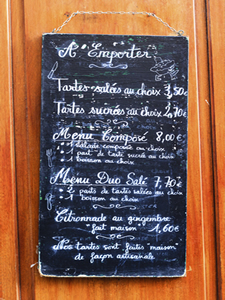 A Emporter
Tartes salées au choix 3,50€
Tartes sucrées au choix 2,70€
Menu Composé 8,00€
1 salade composée au choix
1 part de tarte sucrée au choix
1 boisson au choix
Menu Duo Salé 7,70€
2 parts de tartes salées au choix
1 boisson au choix
Citronnade au gingembre
fait maison 1,60€
Nos tartes sont faites maison
de façon artisanale